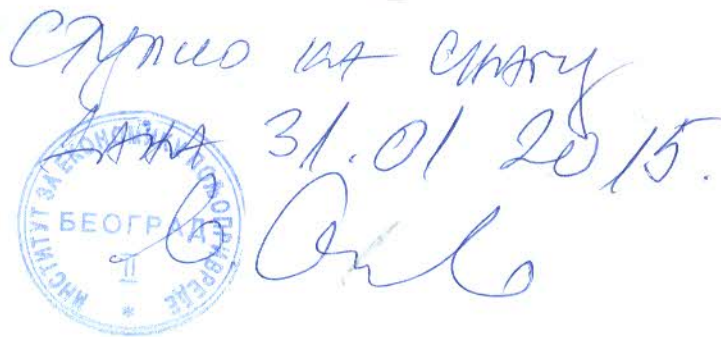 Ступио на снагу
дана 31.01 2015.
ИНСТИТУТ ЗА ЕКОНОМИКУ ПОЉОПРИВРЕДЕ
БЕОГРАД
II